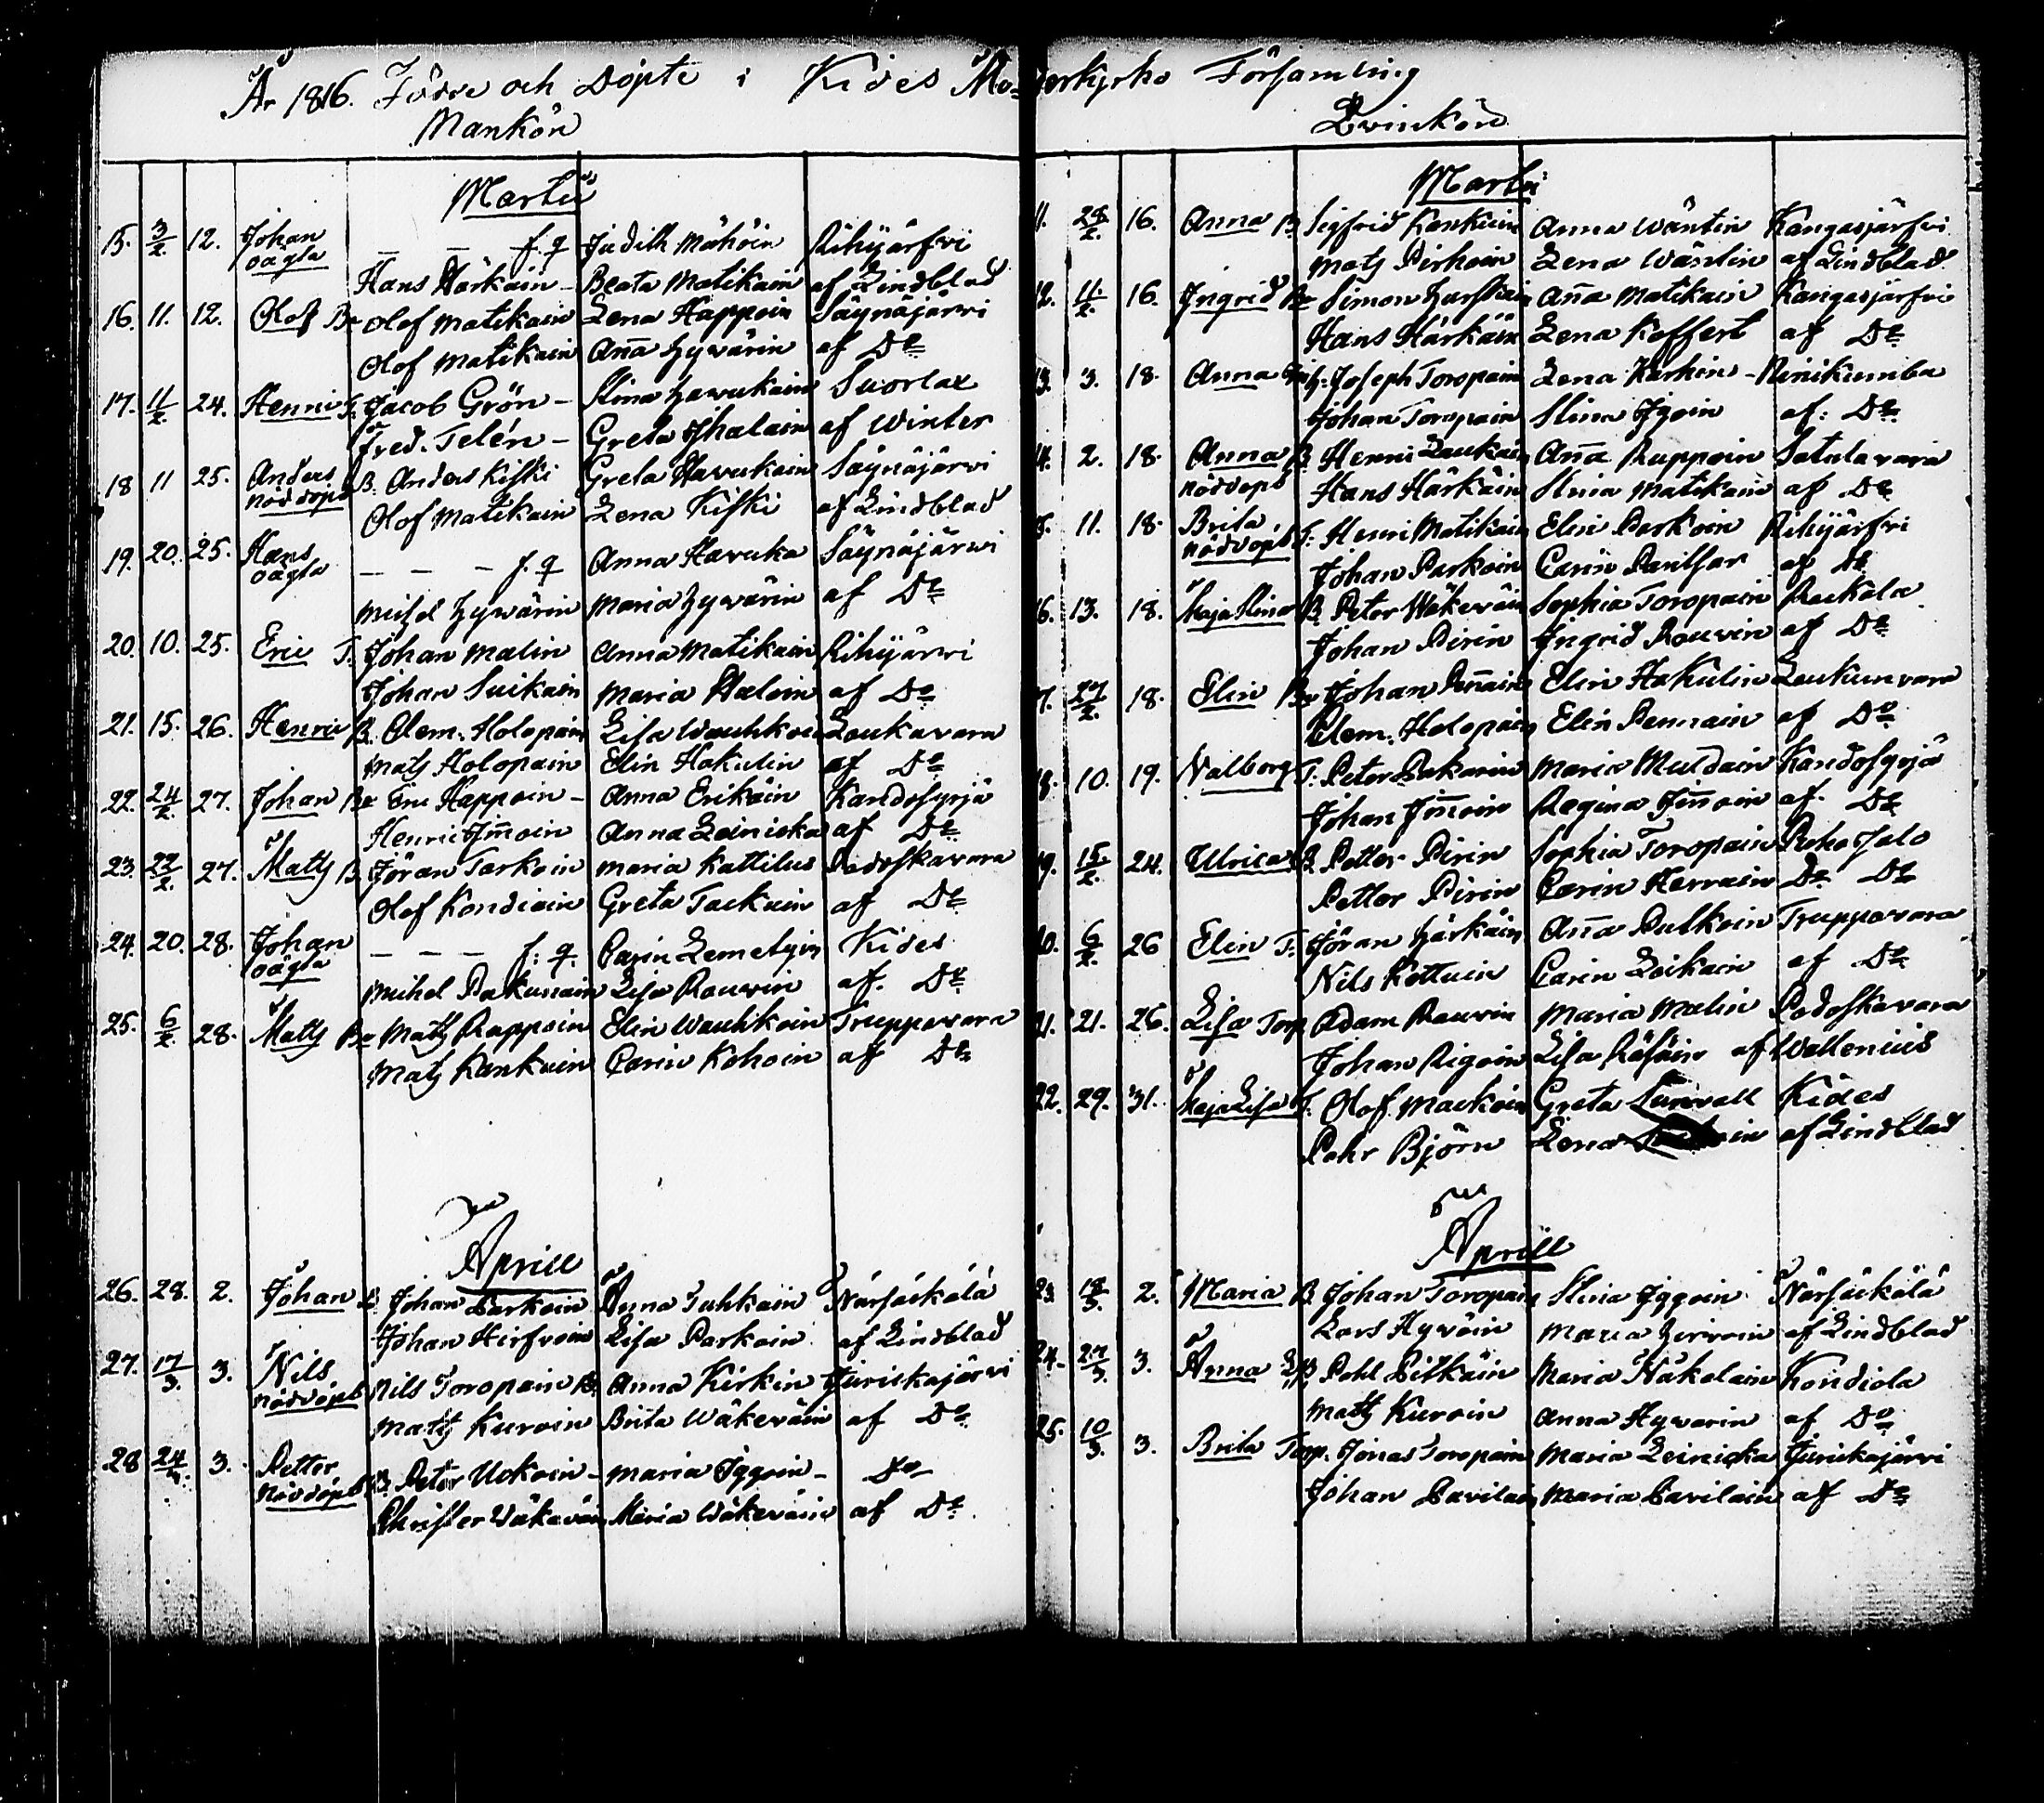 År 1816. Födde och Döpte i Kides Moderkyrko Församling
Mankön
Martii
15. 3/2. 12. Johan — — f. q Judith Mähöin Rihijärfvi
oägta Hans Härkäin - Beata Matikain af Lindblad
16. 11. 12. Olof Be Olof Matikain Lena Happoin Säynäjärvi
Olof Matikain Ana Hyvärin af Do
17. 11/2. 24. Henric Jacob Grön - Stina Havukain Suorlax
Fred. Telén - Greta Ihalain af Winter
18 11 25. Anders B. Anders Kiski Greta Havukain Säynäjärvi
nöddöpt Olof Matikain Lena Kiski af Lindblad
19. 20. 25. Hans — — — f. q Anna Havuka Säynäjärvi
oägta Michel Hyvärin Maria Hyvärin af Do
20. 10. 25. Eric T. Johan Malin Anna Matikain Rihijärvi
Johan Suikain Maria Haloin af Do
21. 15. 26. Henric B. Clem. Holopain Lisa Wauhkoin Loukavara
Mats Holopain Elin Hakulin af Do
22. 24/2. 27. Johan Be Eric Happoin - Anna Erikäin Kandosyrjä
Henric Imoin Anna Leinicka af Do
23. 22/2. 27. Matts B. Jöran Tarkoin Maria Kattilus Podoskavara
Olof Kondiain Greta Tackuin af Do
24. 20. 28. Johan — — — f: q. Carin Lemetyin Kides
oägta Michel Pakunain Lisa Rouvin af. Do
25. 6/2. 28. Matts Be Mats Rappoin Elin Wauhkoin Truppovara
Mats Kankuin Carin Kohoin af Do
Aprill
26. 28. 2. Johan Johan Parkoin Anna Tuhkain Närsäkälä
Johan Hirfvoin Lisa Parkoin af Lindblad
27. 17/3. 3. Nils Nils Toropain B. Anna Kirkin Juurickajärvi
nöddöpt Mats Kuroin Brita Wäkeväin af Do
28 24/3. 3. Petter B. Peter Uckoin - Maria Iggoin - Do
Nöddöpt Christer Wäkeväin Maria Wäkeväin af Do.
Qvinkön
Martii
11. 28/2. 16. Anna B. Sigfrid Kankuin Anna Wäntin Kangasjärfvi
Mats Pirhoin Lena Wäntin af Lindblad
12. 11/2. 16. Ingrid Be Simon Ana Matikain Kangasjärfvi
Hans Härkäin Lena Koffert af Do
13. 3. 18. Anna Joseph Toropain Lena Kirkin - Rinikumba
Johan Toropain Stina Igoin af: Do
14. 2. 18. Anna B. Henric Laukain Ana Ruppoin Satulavara
nöddöpt Hans Härkäin Stina Matikain af Do
15. 11. 18. Brita T. Henric Matikain Elin Parkoin Rihijärfvi
nöddöpt Johan Parkoin Carin Pantsar af Do
16. 13. 18. Maja Stina B. Peter Wäkeväin Sophia Toropain Rackala
Johan Pirin Ingrid Rouvin af Do
17. 27/2. 18. Elin Be Johan Penain Elin Hakulin Loukunvara
Clem. Holopain Elin Pennain af Do
18. 10. 19. Walborg T. Peter Pakarin Maria Muldain Kandosyrjä
Johan Imoin Regina Imoin af. Do
19. 15/2. 24. Ulrica B. Petter Pirin Sophia Toropain Puhosalo
Petter Pirin Carin Herrain Do Do
20. 6/2. 26 Elin T. Jöran Härkäin Ana Pulkoin Truppovara
Nils Kottuin Carin Loikain af Do
21. 21. 26. Lisa Torp Adam Rouvin Maria Malin Podoskavara
Johan Rigoin Lisa Räsäin af Wallenius
22. 29. 31. Maja Lisa T. Olof Mackoin Greta Kides
Pehr Björn Lena af Lindblad
Aprill
23 18/3. 2. Maria B. Johan Toropain Stina Iggoin Närsäkälä
Lars Hyvöin Maria Hirvoin af Lindblad
24. 27/3 3. Anna Pehl Pitkäin Maria Näkolain Kondiola
Mats Kuroin Anna Hyvärin af Do
25. 10/3. 3. Brita Torp. Jonas Toropain Maria Leinicka Juurickajärvi
Johan Pavilain Maria Pavilain af Do